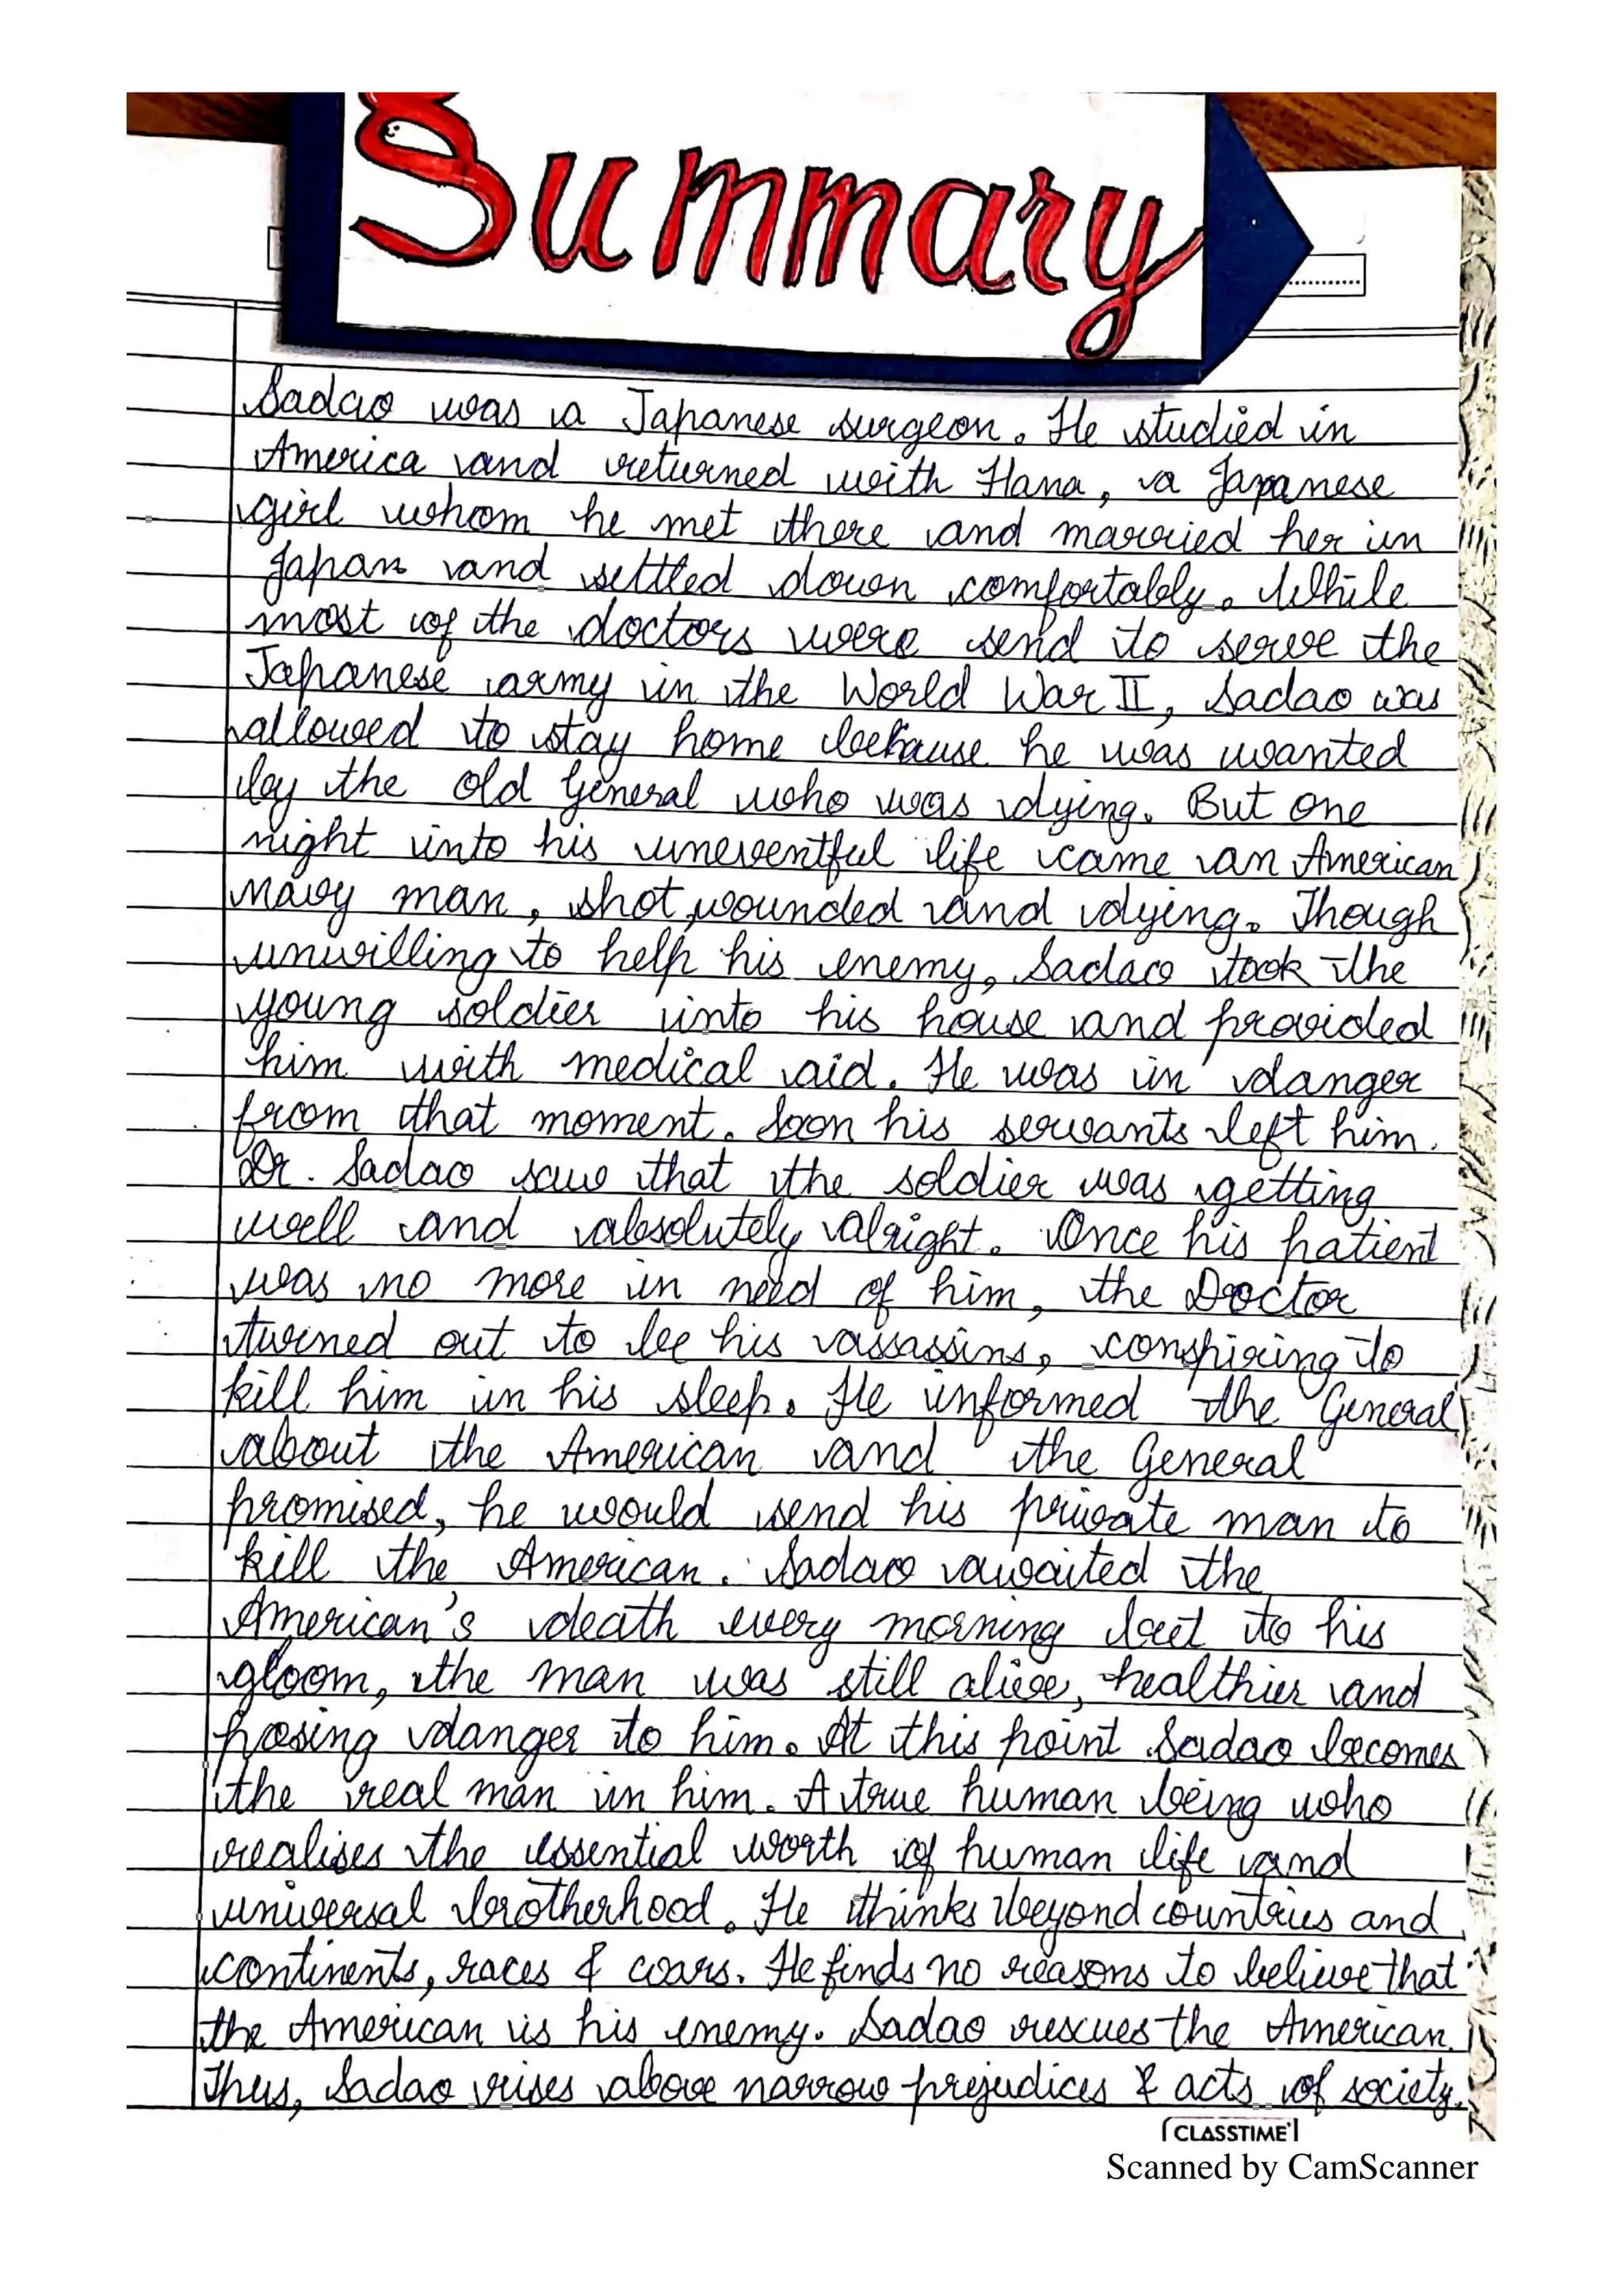 Summary
Sadao was a Japanese surgeon. He studied in
America and returned with Hana, a Japanese
girl whom he met there and married her in
Japan and settled down comfortably. While
most of the doctors were send to serve the
Japanese army in the World War II, Sadao was
allowed to stay home because he was wanted
by the old General who was dying. But one
night into his uneventful life came an American
navy man, shot, wounded and dying. Though
unwilling to help his enemy, Sadao took the
young soldier into his house and provided
him with medical aid. He was in danger
from that moment. Soon his servants left him.
Dr. Sadao saw that the soldier was getting
well and absolutely alright. Once his patient
was no more in need of him, the Doctor
turned out to be his assassins, conspiring to
kill him in his sleep. He informed the General
about the American and the General
promised, he would send his private man to
kill the American. Sadao awaited the
American's death every morning but to his
gloom, the man was still alive, healthier and
posing danger to him. At this point Sadao becomes
the real man in him. A true human being who
realises the essential worth of human life and
universal brotherhood. He thinks beyond countries and
continents, races & wars. He finds no reasons to believe that
the American is his enemy. Sadao rescues the American.
Thus, Sadao rises above narrow prejudices & acts of society.
CLASSTIME
Scanned by CamScanner